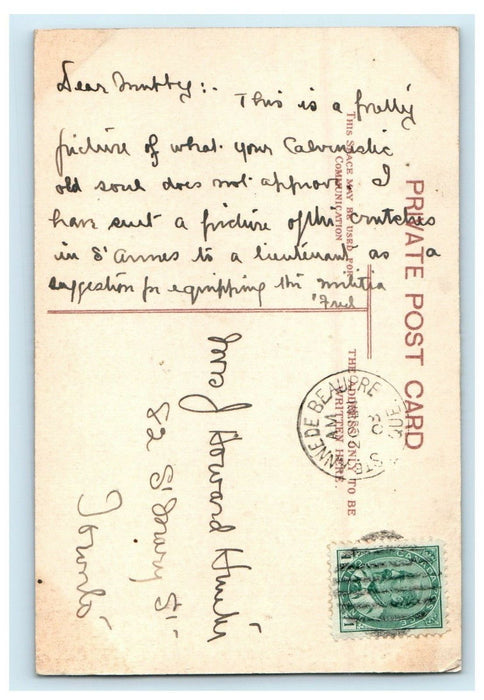 Dear Mutty:-
This is a pretty
picture of what your Calvinistic
old soul does not approve. I
have sent a picture of the crutches
in St Annes to a lieutenant as a
suggestion for equipping the militia
Fred
PRIVATE POST CARD
THIS SPACE MAY BE USED FOR
COMMUNICATION
THE ADDRESS ONLY TO BE
WRITTEN HERE.
Mrs J Howard Hunter
82 St Mary St
Toronto
ANNE DE BEAUPRE QUE.
AM
CANADA
1